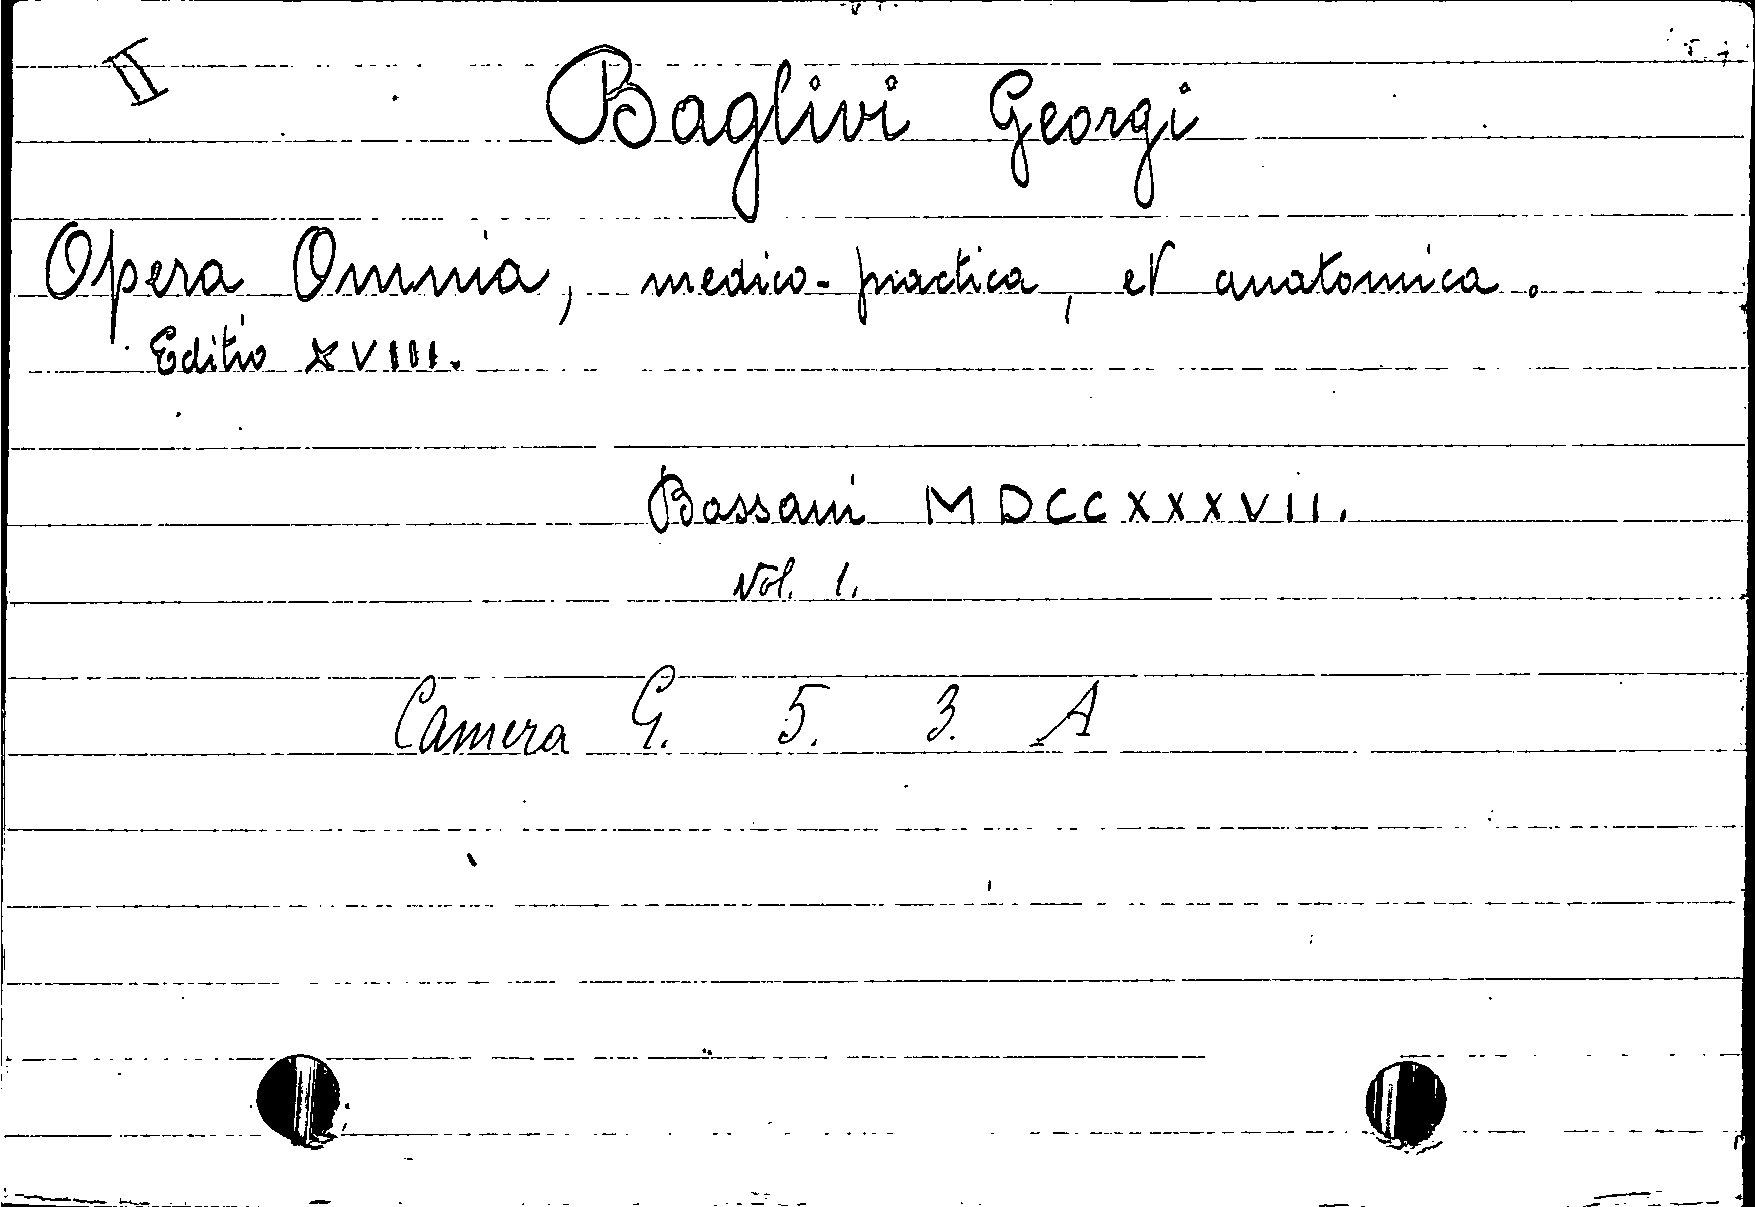 II
Baglivi Georgi
Opera Omnia, medico-practica, et anatomica.
Editio XVIII.
Bassani MDCCXXXVII.
Vol. 1.
Camera G. 5. 3. A